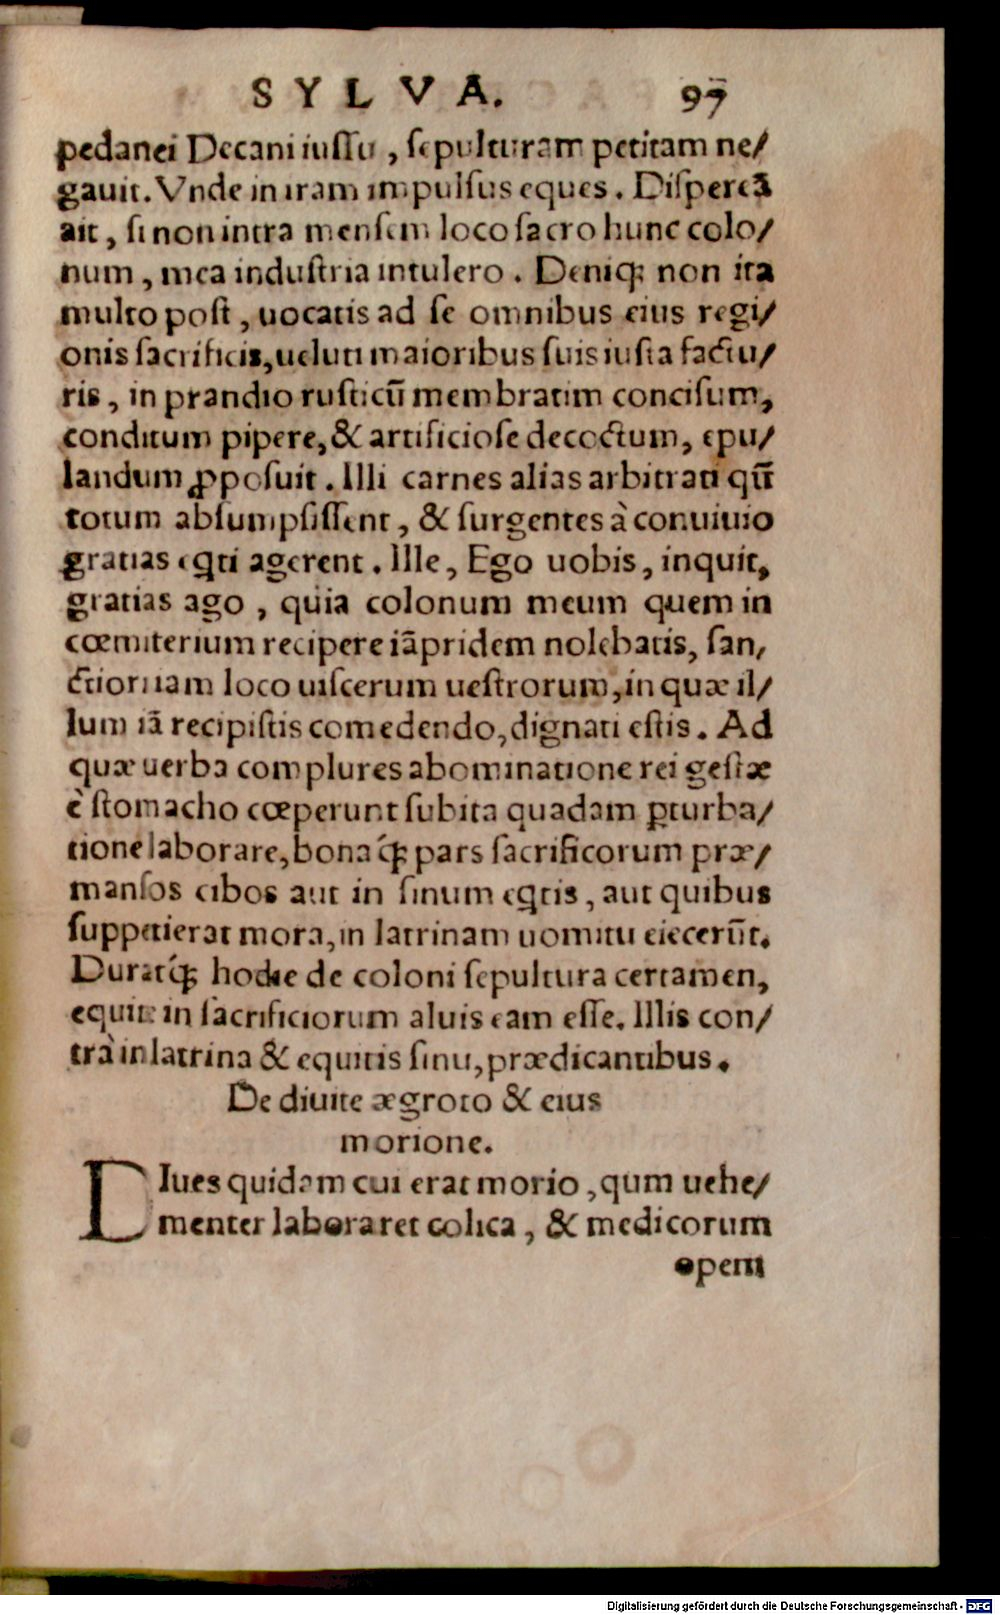 SYLVA. 97
pedanei Decani iuſſu, ſepulturam petitam ne/
gauit. Vnde in iram impulſus eques. Diſpereā
ait, ſi non intra menſem loco ſacro hunc colo/
num, mea induſtria intulero. Deniq; non ita
multo poſt, uocatis ad ſe omnibus eius regi/
onis ſacrificis, ueluti maioribus ſuis iuſta factu/
ris, in prandio ruſticū membratim conciſum,
conditum pipere, & artificioſe decoctum, epu/
landum ꝓpoſuit. Illi carnes alias arbitrati qū
totum abſumpſiſſent, & ſurgentes à conuiuio
gratias eꝗti agerent. Ille, Ego uobis, inquit,
gratias ago, quia colonum meum quem in
cœmiterium recipere iāpridem nolebatis, ſan/
ctiori iam loco uiſcerum ueſtrorum, in quæ il/
lum iā recipiſtis comedendo, dignati eſtis. Ad
quæ uerba complures abominatione rei geſtæ
è ſtomacho cœperunt ſubita quadam ꝑturba/
tione laborare, bonaq́; pars ſacrificorum præ/
manſos cibos aut in ſinum eꝗtis, aut quibus
ſuppetierat mora, in latrinam uomitu eiecerūt.
Duratq́; hodie de coloni ſepultura certamen,
equite in ſacrificiorum aluis eam eſſe. Illis con/
trà in latrina & equitis ſinu, prædicantibus.
De diuite ægroto & eius
morione.
DIues quidam cui erat morio, qum uehe/
menter laboraret colica, & medicorum
opem
Digitalisierung gefördert durch die Deutsche Forschungsgemeinschaft - DFG